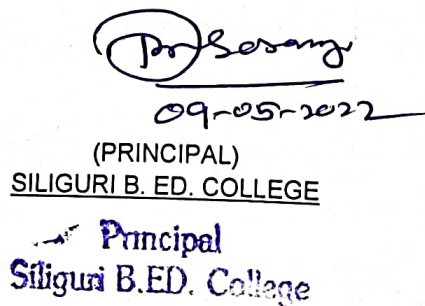 09-05-2022
(PRINCIPAL)
SILIGURI B. ED. COLLEGE
Principal
Siliguri B.ED. College